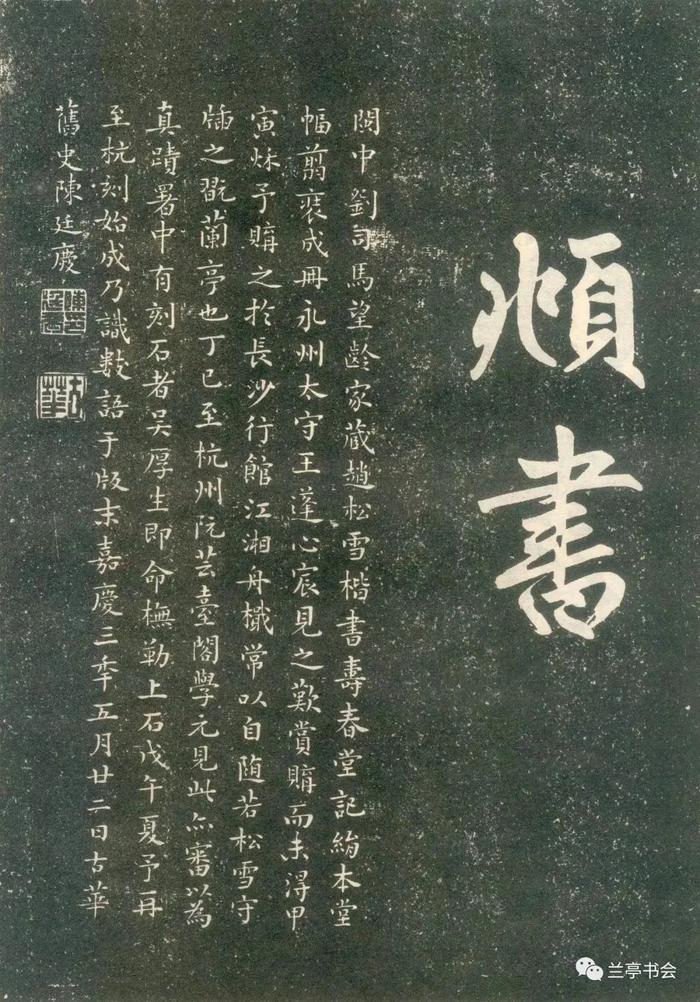 頫書
閩中劉司馬望齡家藏趙松雪楷書壽春堂記絹本堂
幅翦裝成冊永州太守王蓬心宸見之歎賞購而未得甲
寅秌予購之於長沙行館江湘舟檝常以自随若松雪守
之翫蘭亭也丁巳至杭州阮芸臺閣學元見此亦審以為
真蹟署中有刻石者吴厚生即命橅勒上石戊午夏予再
至杭刻始成乃識數語于版末嘉慶三年五月廿二日古華
舊史陳廷慶
兰亭书会